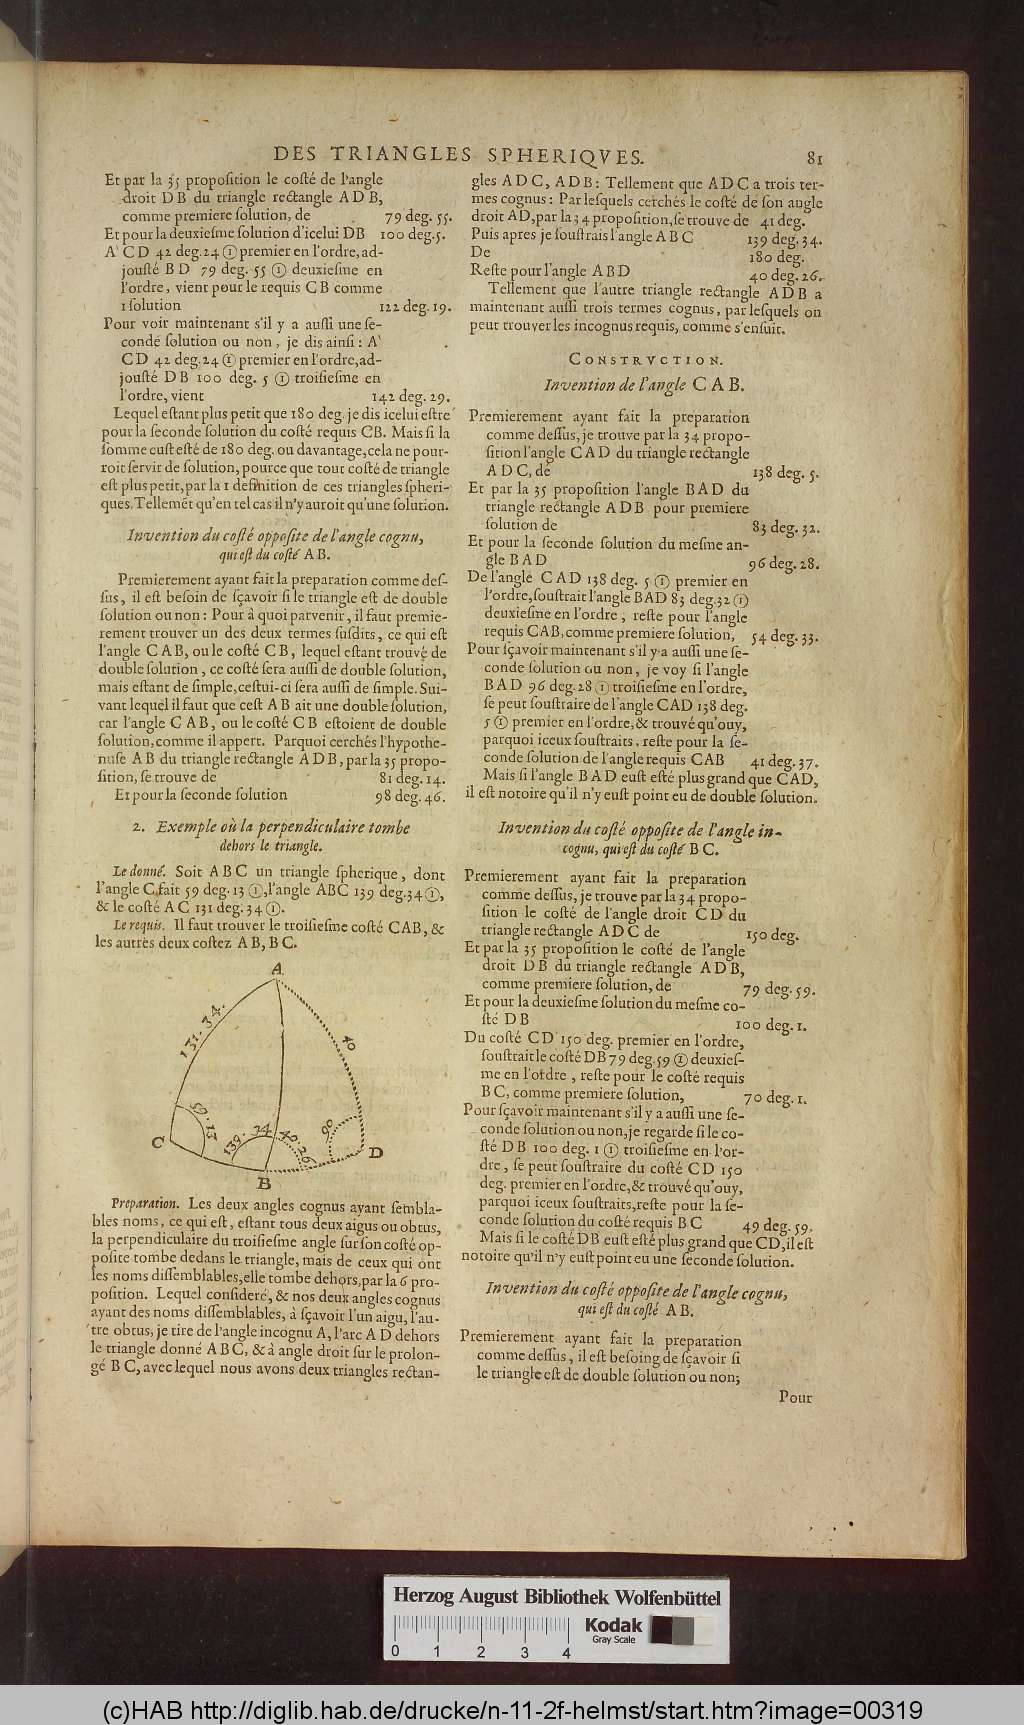 DES TRIANGLES SPHERIQVES. 81
Et par la 35 propoſition le coſté de l'angle
droit DB du triangle rectangle ADB,
comme premiere ſolution, de 79 deg. 55.
Et pour la deuxieſme ſolution d'icelui DB 100 deg. 5.
A' CD 42 deg. 24 ① premier en l'ordre, ad-
jouſté BD 79 deg. 55 ① deuxieſme en
l'ordre, vient pour le requis CB comme
1 ſolution 122 deg. 19.
Pour voir maintenant s'il y a auſſi une ſe-
conde ſolution ou non, je dis ainſi: A'
CD 42 deg. 24 ① premier en l'ordre, ad-
jouſté DB 100 deg. 5 ① troiſieſme en
l'ordre, vient 142 deg. 29.
Lequel eſtant plus petit que 180 deg. je dis icelui eſtre
pour la ſeconde ſolution du coſté requis CB. Mais ſi la
ſomme euſt eſté de 180 deg. ou davantage, cela ne pour-
roit ſervir de ſolution, pource que tout coſté de triangle
eſt plus petit, par la 1 definition de ces triangles ſpheri-
ques. Tellemēt qu'en tel cas il n'y auroit qu'une ſolution.
Invention du coſté oppoſite de l'angle cognu,
qui eſt du coſté AB.
Premierement ayant fait la preparation comme deſ-
ſus, il eſt beſoin de ſçavoir ſi le triangle eſt de double
ſolution ou non: Pour à quoi parvenir, il faut premie-
rement trouver un des deux termes ſuſdits, ce qui eſt
l'angle CAB, ou le coſté CB, lequel eſtant trouvé de
double ſolution, ce coſté ſera auſſi de double ſolution,
mais eſtant de ſimple, ceſtui-ci ſera auſſi de ſimple. Sui-
vant lequel il faut que ceſt AB ait une double ſolution,
car l'angle CAB, ou le coſté CB eſtoient de double
ſolution, comme il appert. Parquoi cerchés l'hypothe-
nuſe AB du triangle rectangle ADB, par la 35 propo-
ſition, ſe trouve de 81 deg. 14.
Et pour la ſeconde ſolution 98 deg. 46.
2. Exemple où la perpendiculaire tombe
dehors le triangle.
Le donné. Soit ABC un triangle ſpherique, dont
l'angle C fait 59 deg. 13 ①, l'angle ABC 139 deg. 34 ①,
& le coſté AC 131 deg. 34 ①.
Le requis. Il faut trouver le troiſieſme coſté CAB, &
les autres deux coſtez AB, BC.
A
131. 34.
40
59. 13
139. 34
40. 26
90
C
D
B
Preparation. Les deux angles cognus ayant ſembla-
bles noms, ce qui eſt, eſtant tous deux aigus ou obtus,
la perpendiculaire du troiſieſme angle ſur ſon coſté op-
poſite tombe dedans le triangle, mais de ceux qui ont
les noms diſſemblables, elle tombe dehors, par la 6 pro-
poſition. Lequel conſideré, & nos deux angles cognus
ayant des noms diſſemblables, à ſçavoir l'un aigu, l'au-
tre obtus, je tire de l'angle incognu A, l'arc AD dehors
le triangle donné ABC, & à angle droit ſur le prolon-
gé BC, avec lequel nous avons deux triangles rectan-
gles ADC, ADB: Tellement que ADC a trois ter-
mes cognus: Par leſquels cerchés le coſté de ſon angle
droit AD, par la 34 propoſition, ſe trouve de 41 deg.
Puis apres je ſouſtrais l'angle ABC 139 deg. 34.
De 180 deg.
Reſte pour l'angle ABD 40 deg. 26.
Tellement que l'autre triangle rectangle ADB a
maintenant auſſi trois termes cognus, par leſquels on
peut trouver les incognus requis, comme s'enſuit.
CONSTRVCTION.
Invention de l'angle CAB.
Premierement ayant fait la preparation
comme deſſus, je trouve par la 34 propo-
ſition l'angle CAD du triangle rectangle
ADC, de 138 deg. 5.
Et par la 35 propoſition l'angle BAD du
triangle rectangle ADB pour premiere
ſolution de 83 deg. 32.
Et pour la ſeconde ſolution du meſme an-
gle BAD 96 deg. 28.
De l'angle CAD 138 deg. 5 ① premier en
l'ordre, ſouſtrait l'angle BAD 83 deg. 32 ①
deuxieſme en l'ordre, reſte pour l'angle
requis CAB, comme premiere ſolution, 54 deg. 33.
Pour ſçavoir maintenant s'il y a auſſi une ſe-
conde ſolution ou non, je voy ſi l'angle
BAD 96 deg. 28 ① troiſieſme en l'ordre,
ſe peut ſouſtraire de l'angle CAD 138 deg.
5 ① premier en l'ordre, & trouvé qu'ouy,
parquoi iceux ſouſtraits, reſte pour la ſe-
conde ſolution de l'angle requis CAB 41 deg. 37.
Mais ſi l'angle BAD euſt eſté plus grand que CAD,
il eſt notoire qu'il n'y euſt point eu de double ſolution.
Invention du coſté oppoſite de l'angle in-
cognu, qui eſt du coſté BC.
Premierement ayant fait la preparation
comme deſſus, je trouve par la 34 propo-
ſition le coſté de l'angle droit CD du
triangle rectangle ADC de 150 deg.
Et par la 35 propoſition le coſté de l'angle
droit DB du triangle rectangle ADB,
comme premiere ſolution, de 79 deg. 59.
Et pour la deuxieſme ſolution du meſme co-
ſté DB 100 deg. 1.
Du coſté CD 150 deg. premier en l'ordre,
ſouſtrait le coſté DB 79 deg. 59 ① deuxieſ-
me en l'ordre, reſte pour le coſté requis
BC, comme premiere ſolution, 70 deg. 1.
Pour ſçavoir maintenant s'il y a auſſi une ſe-
conde ſolution ou non, je regarde ſi le co-
ſté DB 100 deg. 1 ① troiſieſme en l'or-
dre, ſe peut ſouſtraire du coſté CD 150
deg. premier en l'ordre, & trouvé qu'ouy,
parquoi iceux ſouſtraits, reſte pour la ſe-
conde ſolution du coſté requis BC 49 deg. 59.
Mais ſi le coſté DB euſt eſté plus grand que CD, il eſt
notoire qu'il n'y euſt point eu une ſeconde ſolution.
Invention du coſté oppoſite de l'angle cognu,
qui eſt du coſté AB.
Premierement ayant fait la preparation
comme deſſus, il eſt beſoing de ſçavoir ſi
le triangle eſt de double ſolution ou non;
Pour
Herzog August Bibliothek Wolfenbüttel
0 1 2 3 4
Kodak
Gray Scale
(c)HAB http://diglib.hab.de/drucke/n-11-2f-helmst/start.htm?image=00319